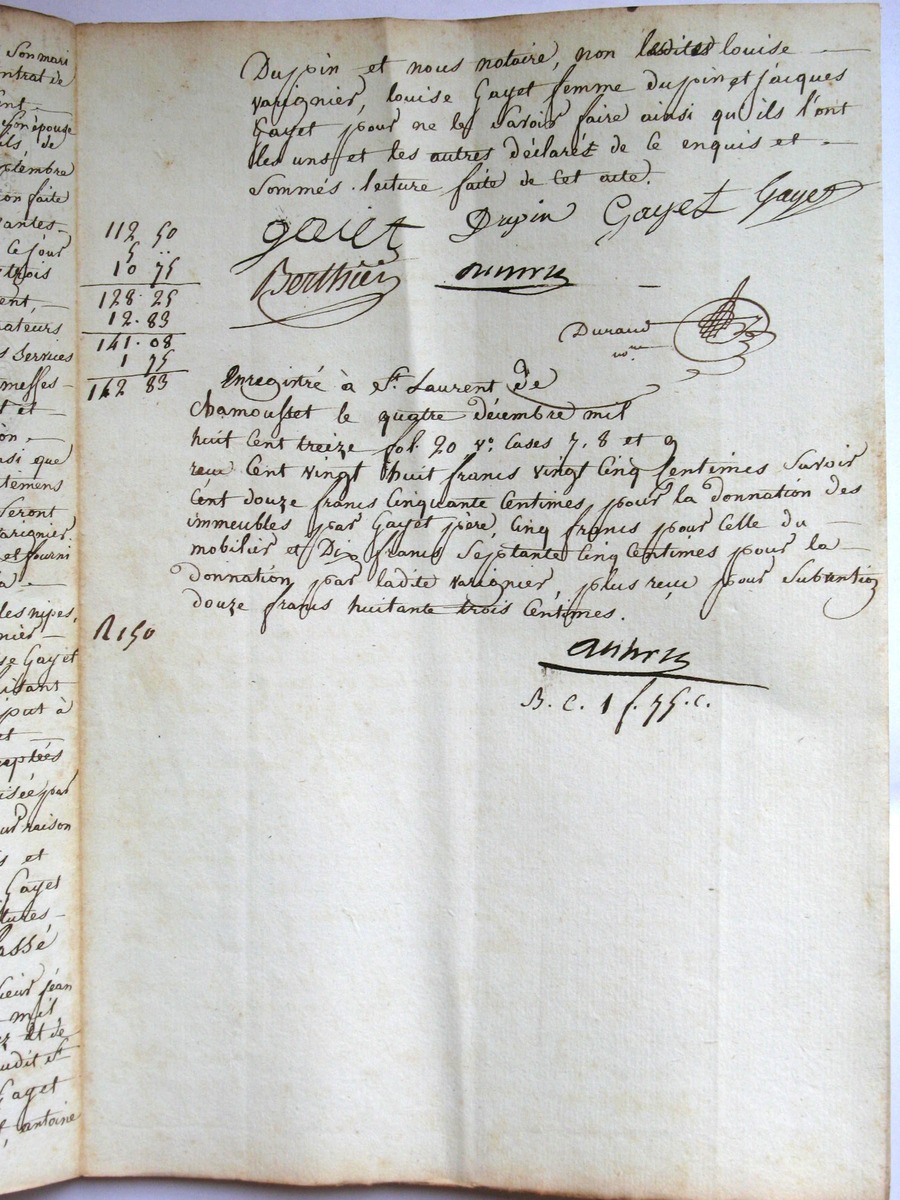 Son mari
ntrat de
ent —
Son épouse
ils, de
ptembre
ion faite
antes —
Ce jour
trois
ent, —
ateurs
s Services
messes —
t et —
on, —
asi que
temens
Seront
arignier.
et fourni
a —
les nipes,
nier —
se Gayet
istant
put à
et —
eptées
isée par
our raison
s et
Gayet
tures —
assé
ieur jean
— mil
et de
udit St
Gayet
antoine
Dupin et nous notaire, non lesdites louise —
varignier, louise Gayet femme dupin et jacques
Gayet pour ne le Savoir faire ainsi qu'ils l'ont
les uns et les autres déclarés de Ce enquis et —
Sommés. lecture faite de Cet acte.
gaiet Dupin Gayet Gayet
Berthier
Durand
nore
112 50
5 ..
10 75
128. 25
12. 83
141. 08
1 75
142 83
Enregistré à St. Laurent de
Chamousset le quatre décembre mil
huit Cent treize fol. 20 vo. Cases 7, 8 et 9
reçu Cent vingt huit francs vingt Cinq Centimes Savoir
Cent douze francs Cinquante Centimes pour la donnation des
immeubles par Gayet père, Cinq francs pour Celle du —
mobilier et Dix francs Septante Cinq Centimes pour la —
Donnation par ladite varignier, plus reçu pour Subvention
douze francs huitante trois Centimes.
R 150
B. C. 1 f. 75. c.